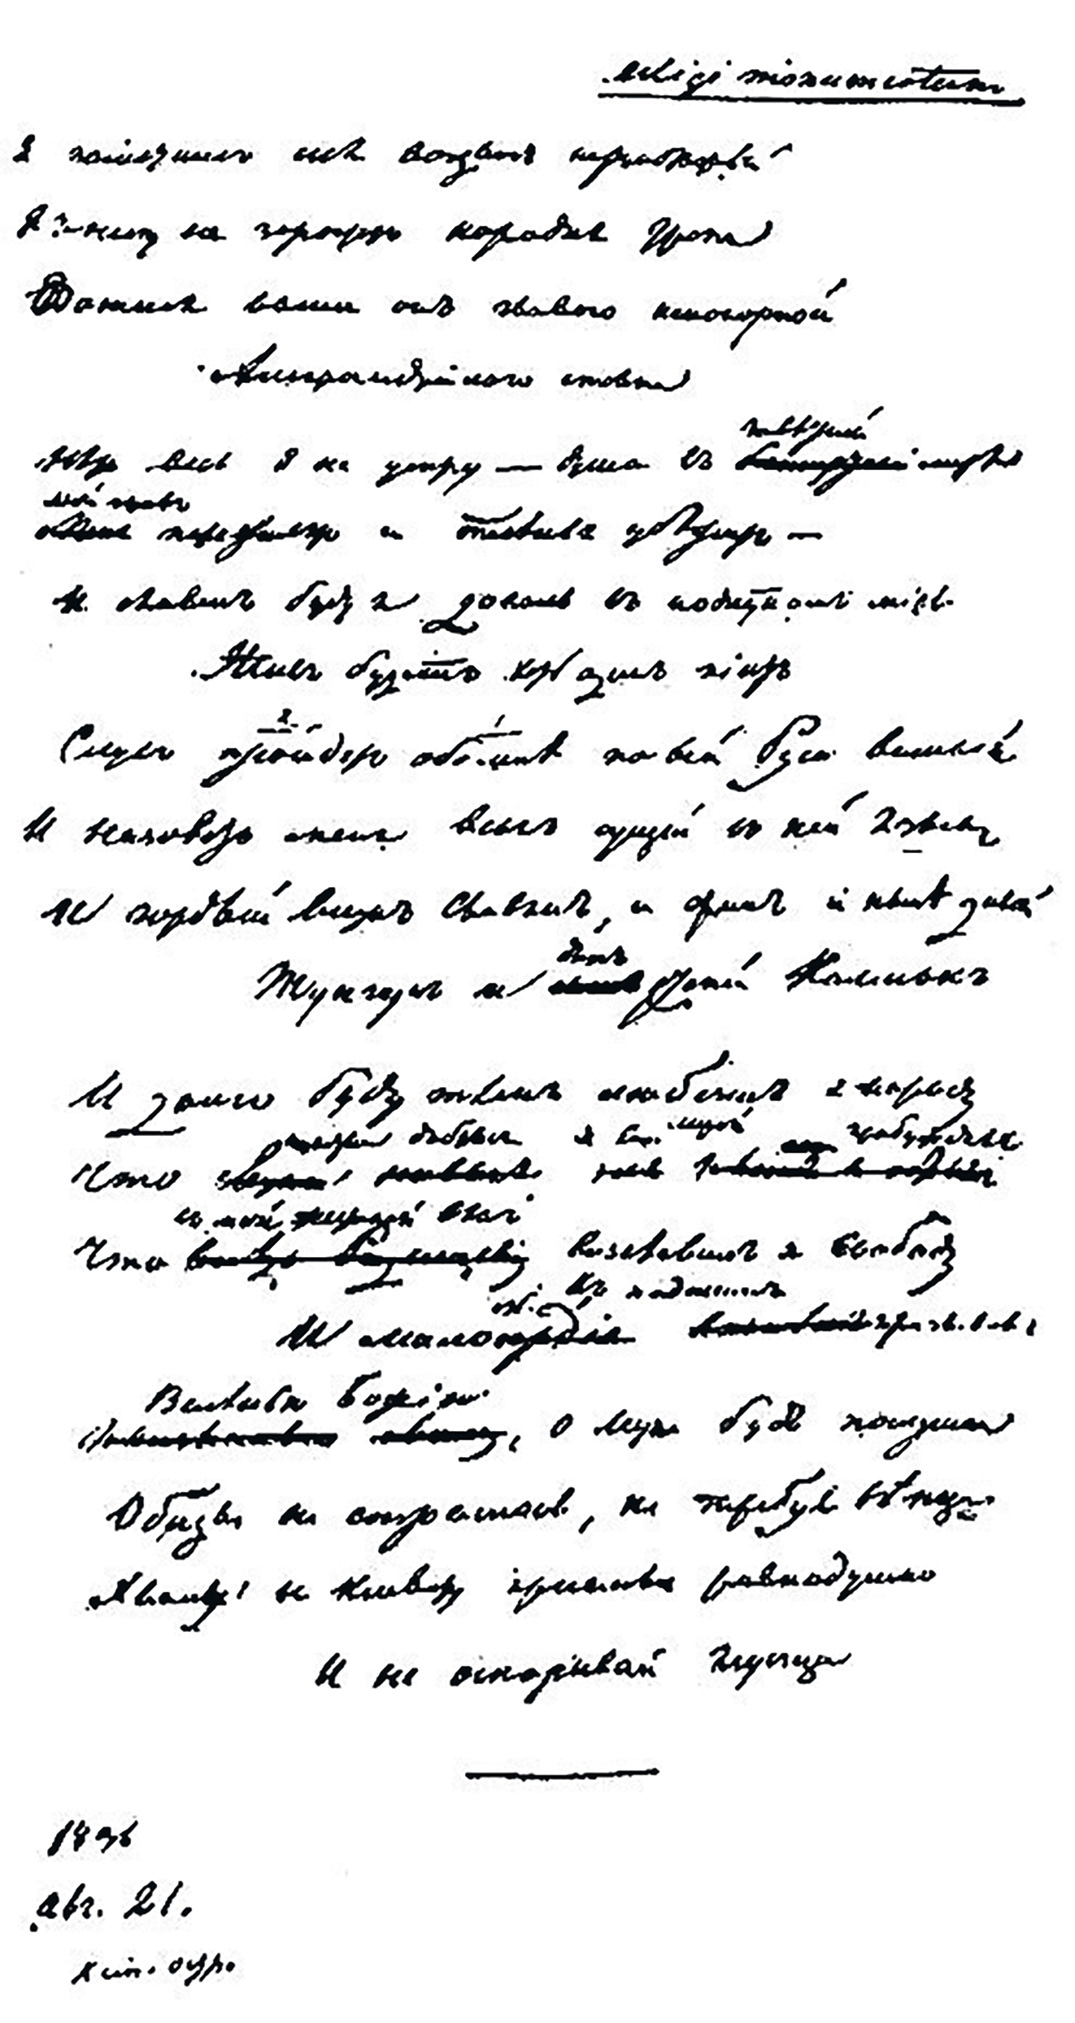 exigi monumentum
Я памятникъ себѣ воздвигъ нерукотворный
Къ нему не заростетъ народная тропа
Вознесся выше онъ главою непокорной
Александрійского столпа
завѣтной
Нѣтъ весь я не умру — душа въ лирѣ
мой прахъ
переживетъ и тлѣнья убѣжитъ —
И славенъ буду я доколь въ подлунномъ мірѣ
Живъ будетъ хоть одинъ піитъ
2 1
Слухъ пройдетъ обо мнѣ по всей Руси великой
И назоветъ меня всякъ сущій въ ней языкъ
И гордый внукъ Славянъ, и финъ и нынѣ дикой
другъ
Тунгузъ и степей Калмыкъ
И долго буду тѣмъ любезенъ я народу
чувства добрыя я лирой пробуждалъ
Что звуки новые для
въ мой жестокой вѣкъ
Что вслѣдъ Радищеву возславилъ я свободу
къ падшимъ
И милосердіе призывалъ
Веленью Божію
, о муза будь послушна
Обиды не страшась, не требуя вѣнца
Хвалу и клевету пріемли равнодушно
И не оспоривай глупца
1836
авг. 21.
Кам. остр.